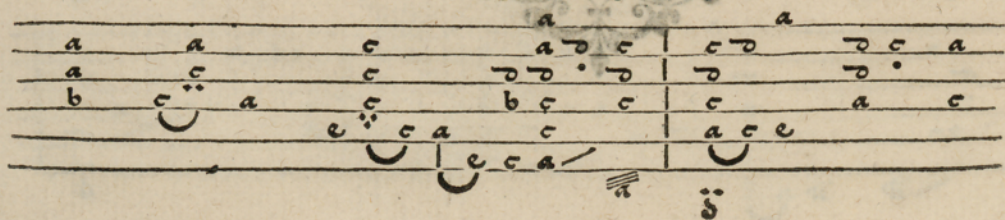 a a
a a c a d c c d d c a
a c c d d d d d
b c a c b c c c a c
e c a c a c e
e c a
a
δ